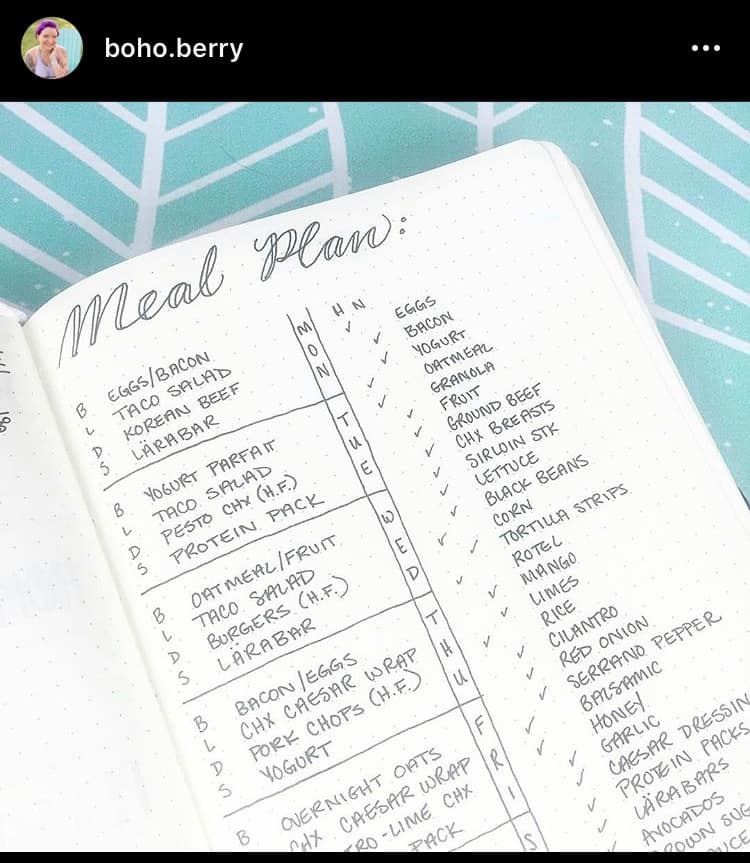 boho.berry
Meal Plan:
B EGGS/BACON
L TACO SALAD
D KOREAN BEEF
S LÄRABAR
MON
B YOGURT PARFAIT
L TACO SALAD
D PESTO CHX (H.F.)
S PROTEIN PACK
TUE
B OATMEAL/FRUIT
L TACO SALAD
D BURGERS (H.F.)
S LÄRABAR
WED
B BACON/EGGS
L CHX CAESAR WRAP
D PORK CHOPS (H.F.)
S YOGURT
THU
B OVERNIGHT OATS
CHX CAESAR WRAP
TRO-LIME CHX
PACK
FRI
S
H N
✓ EGGS
✓ BACON
✓ YOGURT
✓ OATMEAL
✓ GRANOLA
✓ FRUIT
✓ GROUND BEEF
✓ CHX BREASTS
✓ SIRLOIN STK
✓ LETTUCE
✓ BLACK BEANS
✓ CORN
✓ TORTILLA STRIPS
✓ ROTEL
✓ MANGO
✓ LIMES
✓ RICE
✓ CILANTRO
✓ RED ONION
✓ SERRANO PEPPER
✓ BALSAMIC
✓ HONEY
✓ GARLIC
✓ CAESAR DRESSIN
✓ PROTEIN PACKS
✓ LÄRABARS
✓ AVOCADOS
ROWN SUG